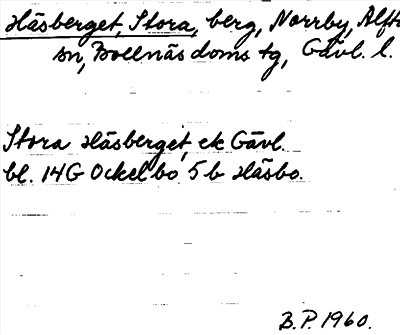 Häsberget, Stora, berg, Norrby, Alfta
sn, Bollnäs doms tg, Gävl. l.
Stora Häsberget, ek Gävl.
bl. 14G Ockelbo 5b Häsbo.
B.P. 1960.